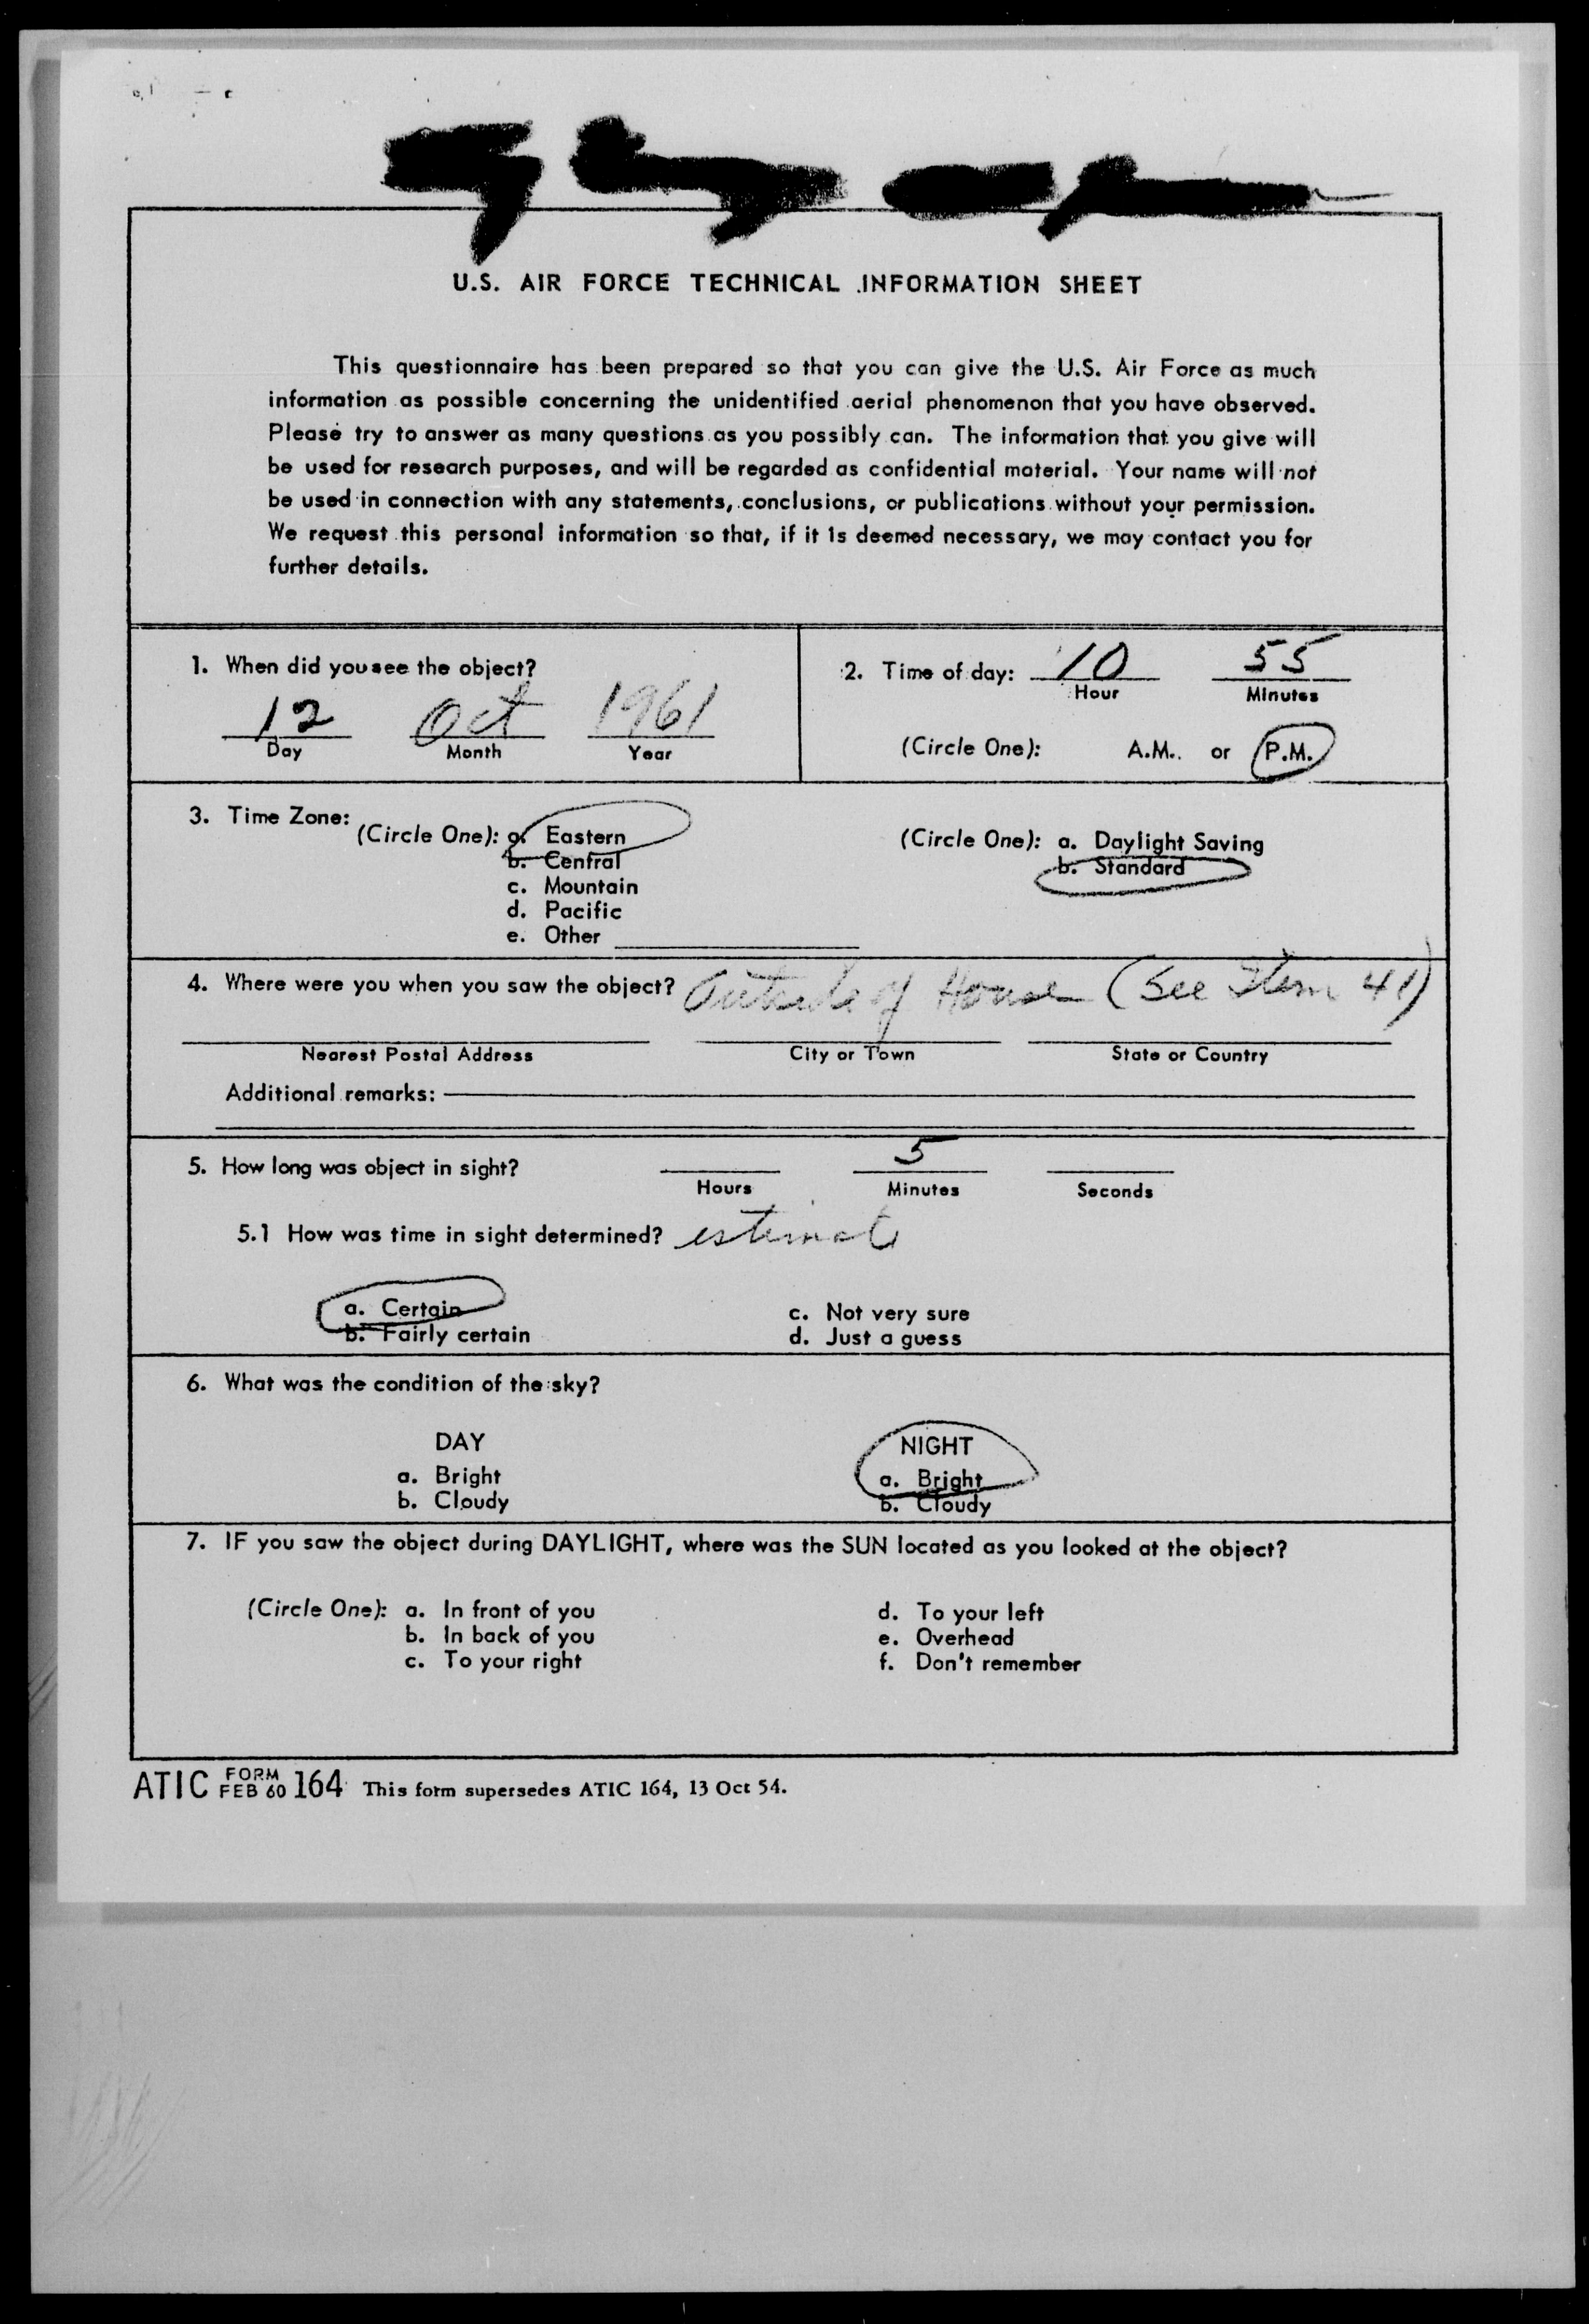 U.S. AIR FORCE TECHNICAL INFORMATION SHEET
This questionnaire has been prepared so that you can give the U.S. Air Force as much
information as possible concerning the unidentified aerial phenomenon that you have observed.
Please try to answer as many questions as you possibly can. The information that you give will
be used for research purposes, and will be regarded as confidential material. Your name will not
be used in connection with any statements, conclusions, or publications without your permission.
We request this personal information so that, if it is deemed necessary, we may contact you for
further details.
1. When did you see the object?
12 Oct 1961
Day Month Year
2. Time of day: 10 55
Hour Minutes
(Circle One): A.M. or P.M.
3. Time Zone:
(Circle One): a. Eastern
b. Central
c. Mountain
d. Pacific
e. Other
(Circle One): a. Daylight Saving
b. Standard
4. Where were you when you saw the object? Outside of House (See Item 41)
Nearest Postal Address City or Town State or Country
Additional remarks:
5. How long was object in sight? 5
Hours Minutes Seconds
5.1 How was time in sight determined? estimate
a. Certain
b. Fairly certain
c. Not very sure
d. Just a guess
6. What was the condition of the sky?
DAY
a. Bright
b. Cloudy
NIGHT
a. Bright
b. Cloudy
7. IF you saw the object during DAYLIGHT, where was the SUN located as you looked at the object?
(Circle One): a. In front of you
b. In back of you
c. To your right
d. To your left
e. Overhead
f. Don't remember
ATIC FORM FEB 60 164 This form supersedes ATIC 164, 13 Oct 54.